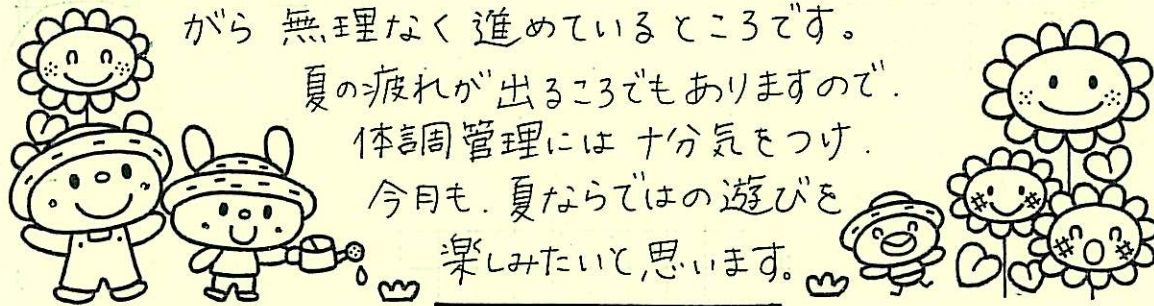 がら 無理なく進めているところです。
夏の疲れが出るころでもありますので.
体調管理には十分気をつけ.
今月も.夏ならではの遊びを
楽しみたいと思います。